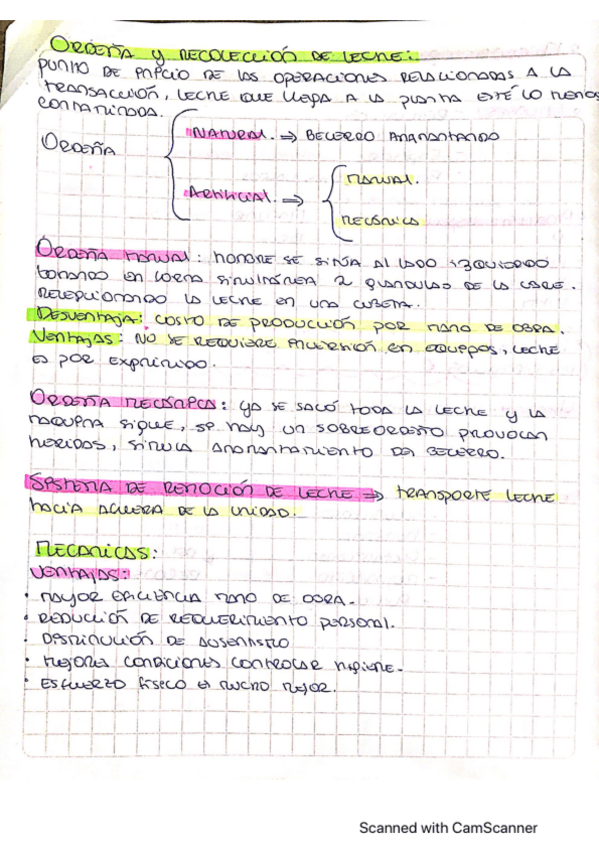 ORDEÑA y RECOLECCIÓN DE LECHE:
PUNTO DE INICIO DE LAS OPERACIONES RELACIONADAS A LA
TRANSACCIÓN, LECHE QUE LLEGA A LA PLANTA ESTÉ LO MENOS
CONTAMINADA.
ORDEÑA
NATURAL. ⇒ BECERRO AMAMANTANDO
ARTIFICIAL. ⇒
MANUAL.
MECÁNICA
ORDEÑA MANUAL: HOMBRE SE SITÚA AL LADO IZQUIERDO
TOMANDO EN FORMA SIMULTÁNEA 2 GLANDULAS DE LA UBRE.
RECEPCIONANDO LA LECHE EN UNA CUBETA.
DESVENTAJA: COSTO DE PRODUCCIÓN POR MANO DE OBRA.
VENTAJAS: NO SE REQUIERE INVERSIÓN EN EQUIPOS, LECHE
ES POR EXPRIMIDO.
ORDEÑA MECÁNICA: YA SE SACÓ TODA LA LECHE Y LA
MAQUINA SIGUE, SI HAY UN SOBREORDEÑO PROVOCAN
HERIDAS, SIMULA AMAMANTAMIENTO DEL BECERRO.
SISTEMA DE REMOCIÓN DE LECHE ⇒ TRANSPORTE LECHE
HACIA AFUERA DE LA UNIDAD.
MECANICAS:
VENTAJAS:
• MAYOR EFICIENCIA MANO DE OBRA.
• REDUCCIÓN DE REQUERIMIENTO PERSONAL.
• DISMINUCIÓN DE AUSENTISMO
• MEJORES CONDICIONES CONTROLAR HIGIENE.
• ESFUERZO FÍSICO ES MUCHO MEJOR.
Scanned with CamScanner